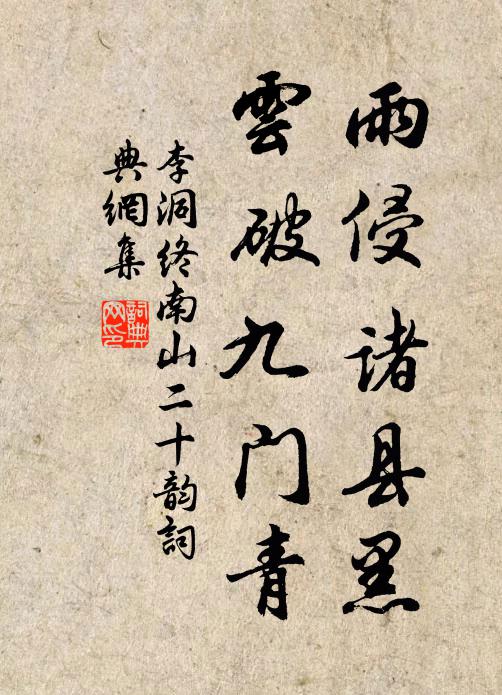 雨侵诸县黑
雲破九门青
李洞终南山二十韵詞
典網集
詞典
网印